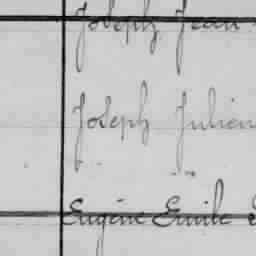 Joseph Jean
Joseph Julien
Eugène Emile